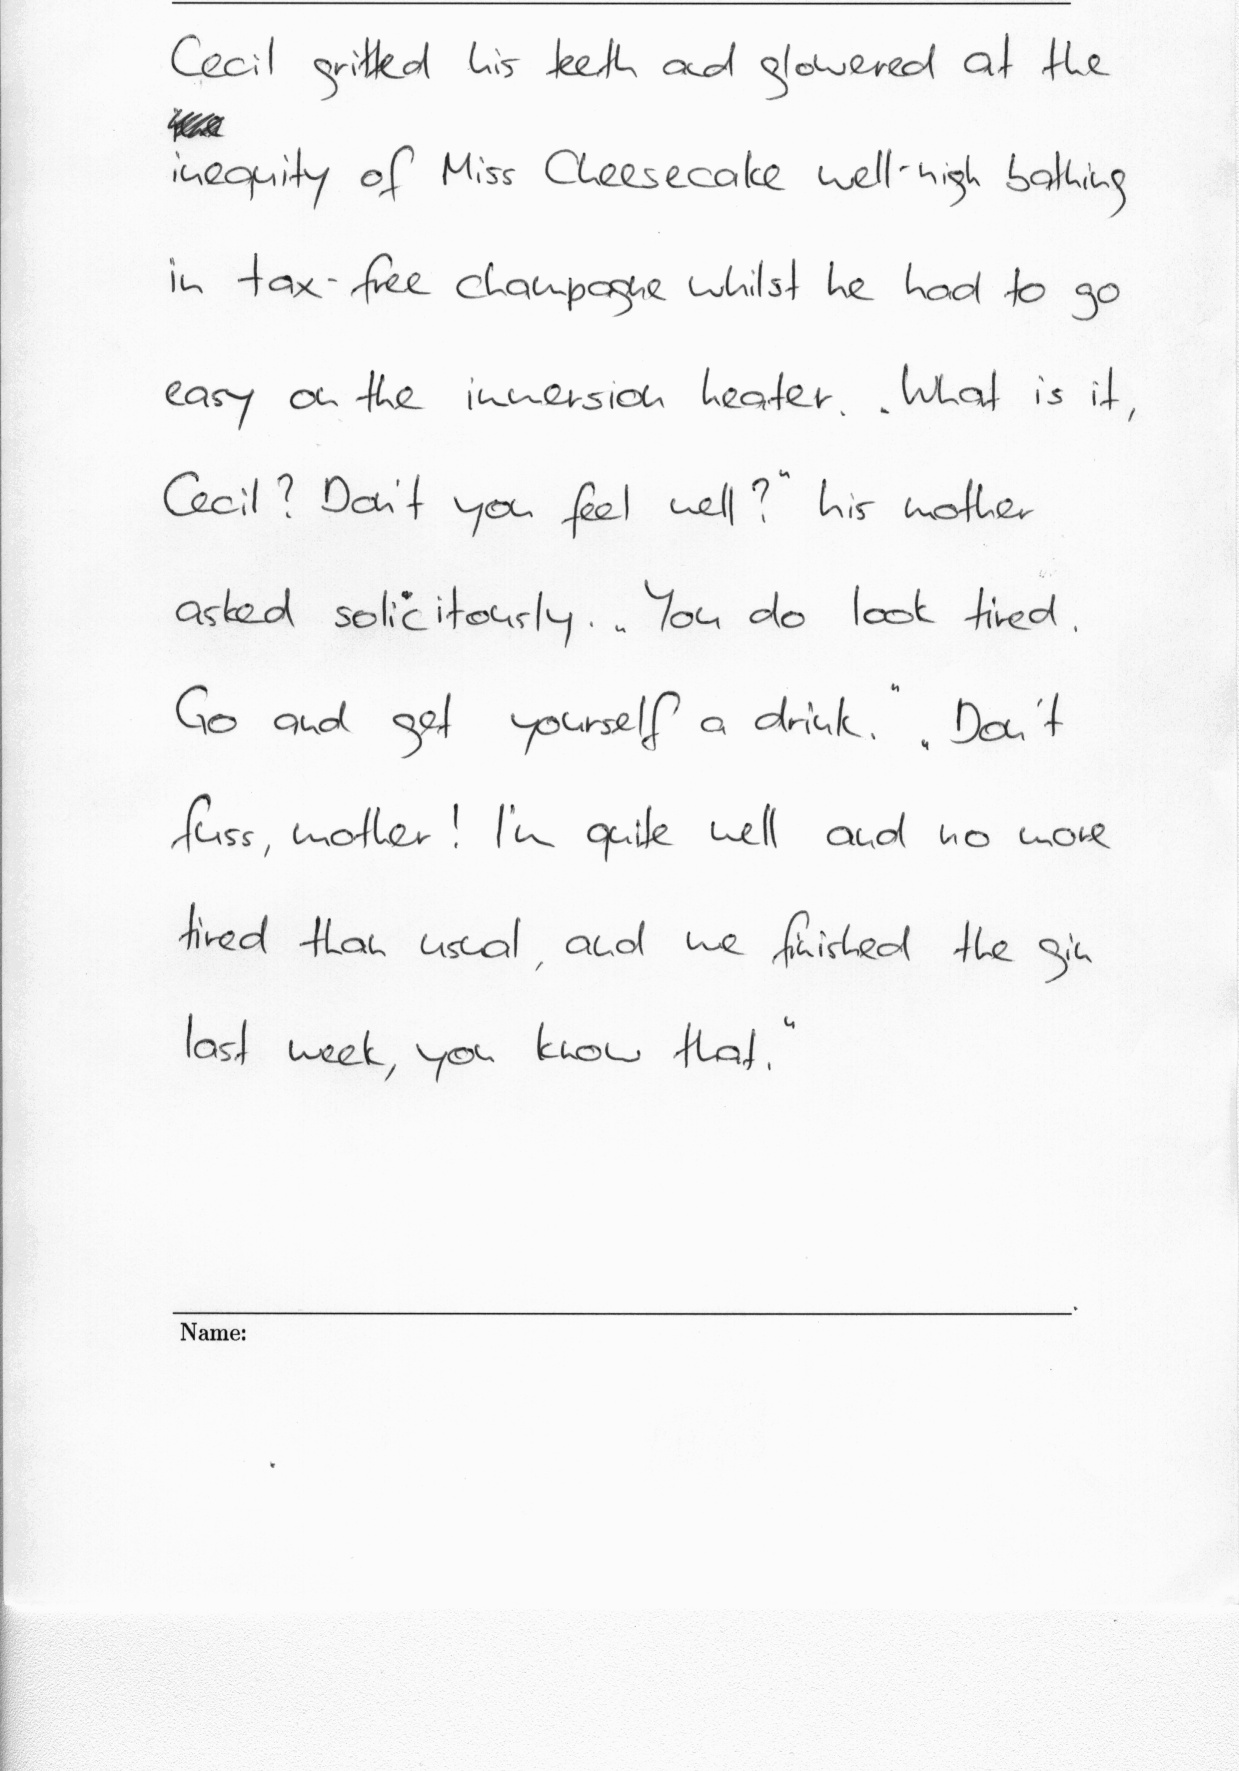 Cecil gritted his teeth and glowered at the
inequity of Miss Cheesecake well-nigh bathing
in tax-free champagne whilst he had to go
easy on the immersion heater. „What is it,
Cecil? Don't you feel well?" his mother
asked solicitously. „You do look tired.
Go and get yourself a drink." „Don't
fuss, mother! I'm quite well and no more
tired than usual, and we finished the gin
last week, you know that."
Name: